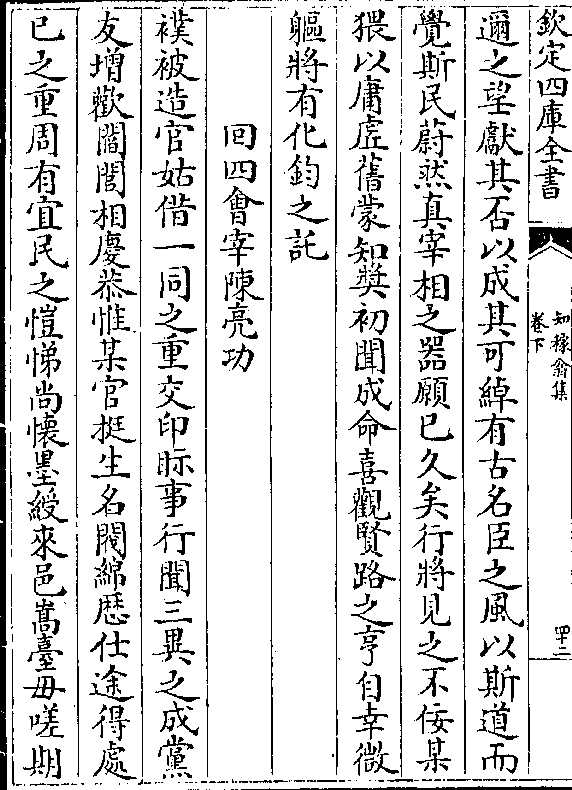 欽定四庫全書
知稼翁集
卷下
四十二
邇之望獻其否以成其可綽有古名臣之風以斯道而
覺斯民蔚然真宰相之器願已久矣行將見之不佞某
猥以庸虛舊蒙知奬初聞成命喜觀賢路之亨自幸微
軀將有化鈞之託
回四會宰陳亮功
襆被造官姑借一同之重交印眎事行聞三異之成黨
友增歡閭閻相慶恭惟某官挺生名閥綿歴仕途得處
已之重周有宜民之愷悌尚懷墨綬來邑嵩臺毋嗟期